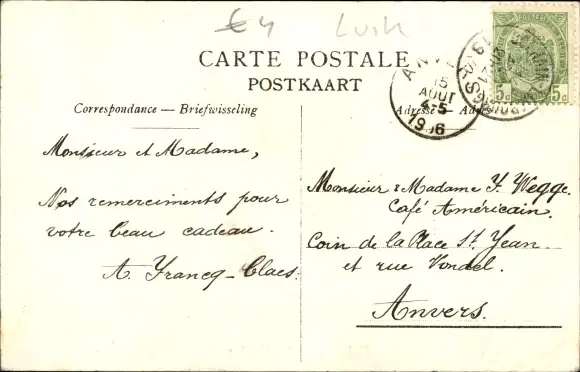 €4 Luik
CARTE POSTALE
POSTKAART
Correspondance — Briefwisseling
Adresse — Adres
ANVE
15
AOUT
4-5
1906
5c 5c
Monsieur et Madame,
Nos remerciments pour
votre beau cadeau.
A. Francq-Claes.
Monsieur & Madame F. Wegge.
Café Américain.
Coin de la Place St. Jean
et rue Vondel.
Anvers.